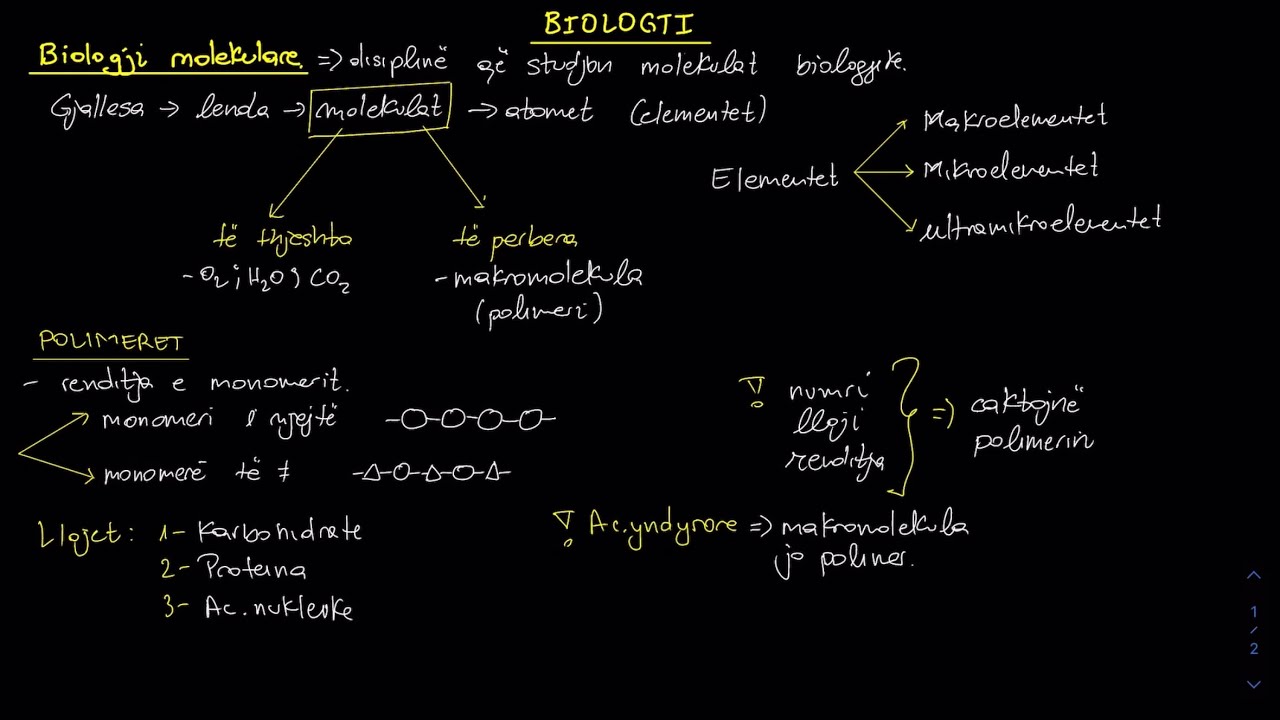 BIOLOGTI
Biologji molekulare => disiplinë që studjon molekulat biologjike.
Gjallesa → lenda → molekulat → atomet (elementet)
Elementet
Makroelementet
Mikroelementet
ultramikroelementet
të thjeshta
- O2; H2O; CO2
të perbera
- makromolekula
(polimeri)
POLIMERET
- renditja e monomerit.
monomeri i njejtë
monomerë të ≠
! numri
lloji
renditja
=> caktojnë
polimerin
Llojet: 1- Karbohidrate
2- Proteina
3- Ac. nukleike
! Ac. yndyrore => makromolekula
jo polimer.
1
/
2